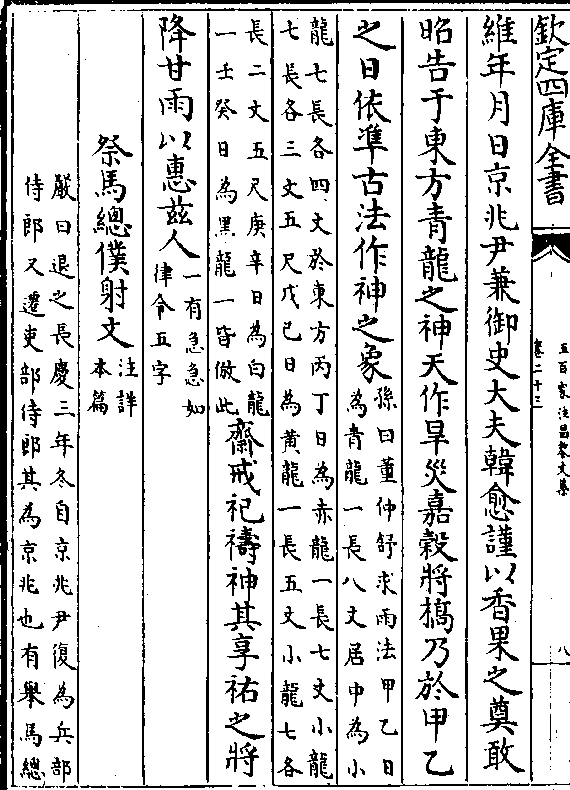 欽定四庫全書
五百家注昌黎文集
卷二十三
八
維年月日京兆尹兼御史大夫韓愈謹以香果之奠敢
昭告于東方青龍之神天作旱災嘉穀將槁乃於甲乙
之日依準古法作神之象
孫曰董仲舒求雨法甲乙日
為青龍一長八丈居中為小
龍七長各四丈於東方丙丁日為赤龍一長七丈小龍
七長各三丈五尺戊己日為黄龍一長五丈小龍七各
長二丈五尺庚辛日為白龍
一壬癸日為黑龍一皆倣此
齋戒祀禱神其享祐之將
降甘雨以惠兹人
一有急急如
律令五字
祭馬總僕射文
注詳
本篇
嚴曰退之長慶三年冬自京兆尹復為兵部
侍郎又遷吏部侍郎其為京兆也有舉馬總